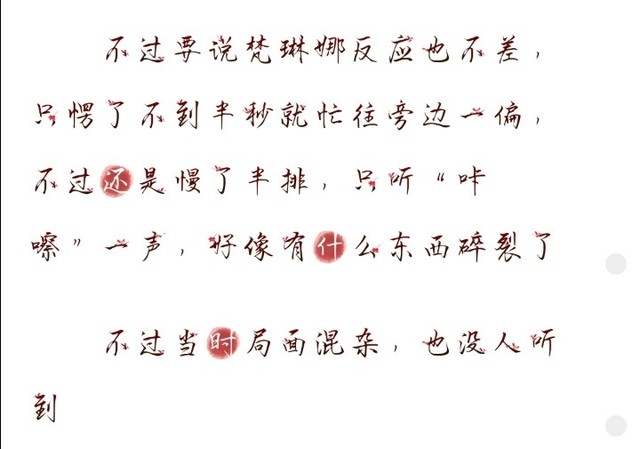 不过要说梵琳娜反应也不差，
只愣了不到半秒就忙往旁边一偏，
不过还是慢了半排，只听“咔
嚓”一声，好像有什么东西碎裂了
不过当时局面混杂，也没人听
到